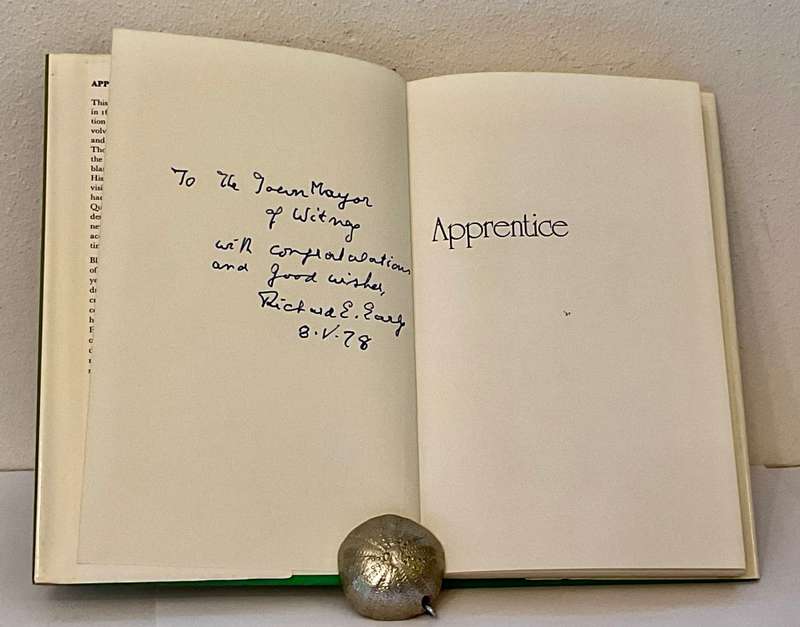 APP
This
in 16
tion
volv
and
Tho
the
blan
His
visi
had
Qu
des
nev
acc
tin
Bl
of
ye
d
cu
c
h
E
o
d
r
To The Town Mayor
of Witney
with congratulations
and good wishes,
Richard E. Early
8.V.78
Apprentice